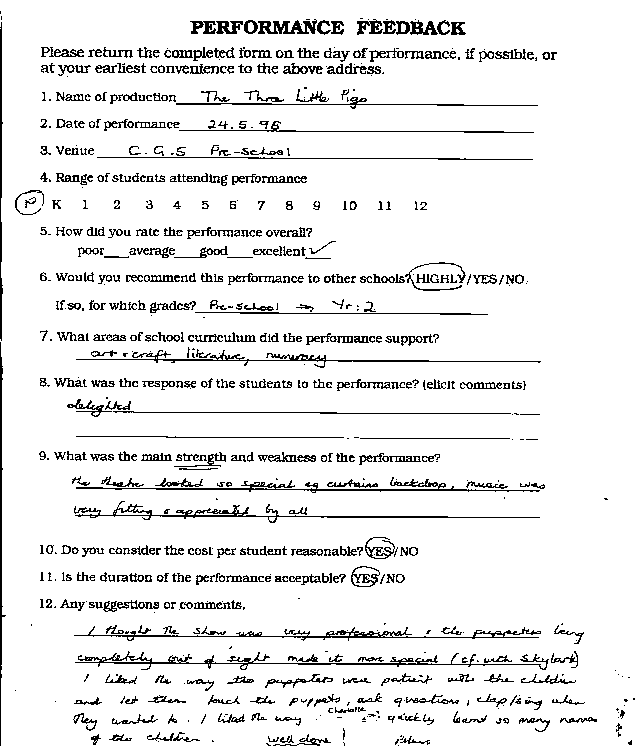 PERFORMANCE FEEDBACK
Please return the completed form on the day of performance, if possible, or
at your earliest convenience to the above address.
1. Name of production The Three Little Pigs
2. Date of performance 24.5.95
3. Venue C.G.S Pre-School
4. Range of students attending performance
P K 1 2 3 4 5 6 7 8 9 10 11 12
5. How did you rate the performance overall?
poor average good excellent ✓
6. Would you recommend this performance to other schools? HIGHLY/YES/NO.
If so, for which grades? Pre-School → Yr: 2
7. What areas of school curriculum did the performance support?
art & craft, literature, numeracy
8. What was the response of the students to the performance? (elicit comments)
delighted
9. What was the main strength and weakness of the performance?
the theatre looked so special eg curtains backdrop, music was
very fitting & appreciated by all
10. Do you consider the cost per student reasonable? YES/NO
11. Is the duration of the performance acceptable? YES/NO
12. Any suggestions or comments.
I thought the show was very professional & the puppeteers being
completely out of sight made it more special (cf. with Skylark)
I liked the way the puppeteers were patient with the children
and let them touch the puppets, ask questions, clap/sing when
they wanted to. I liked the way Charlotte quickly learnt so many names
of the children. Well done!